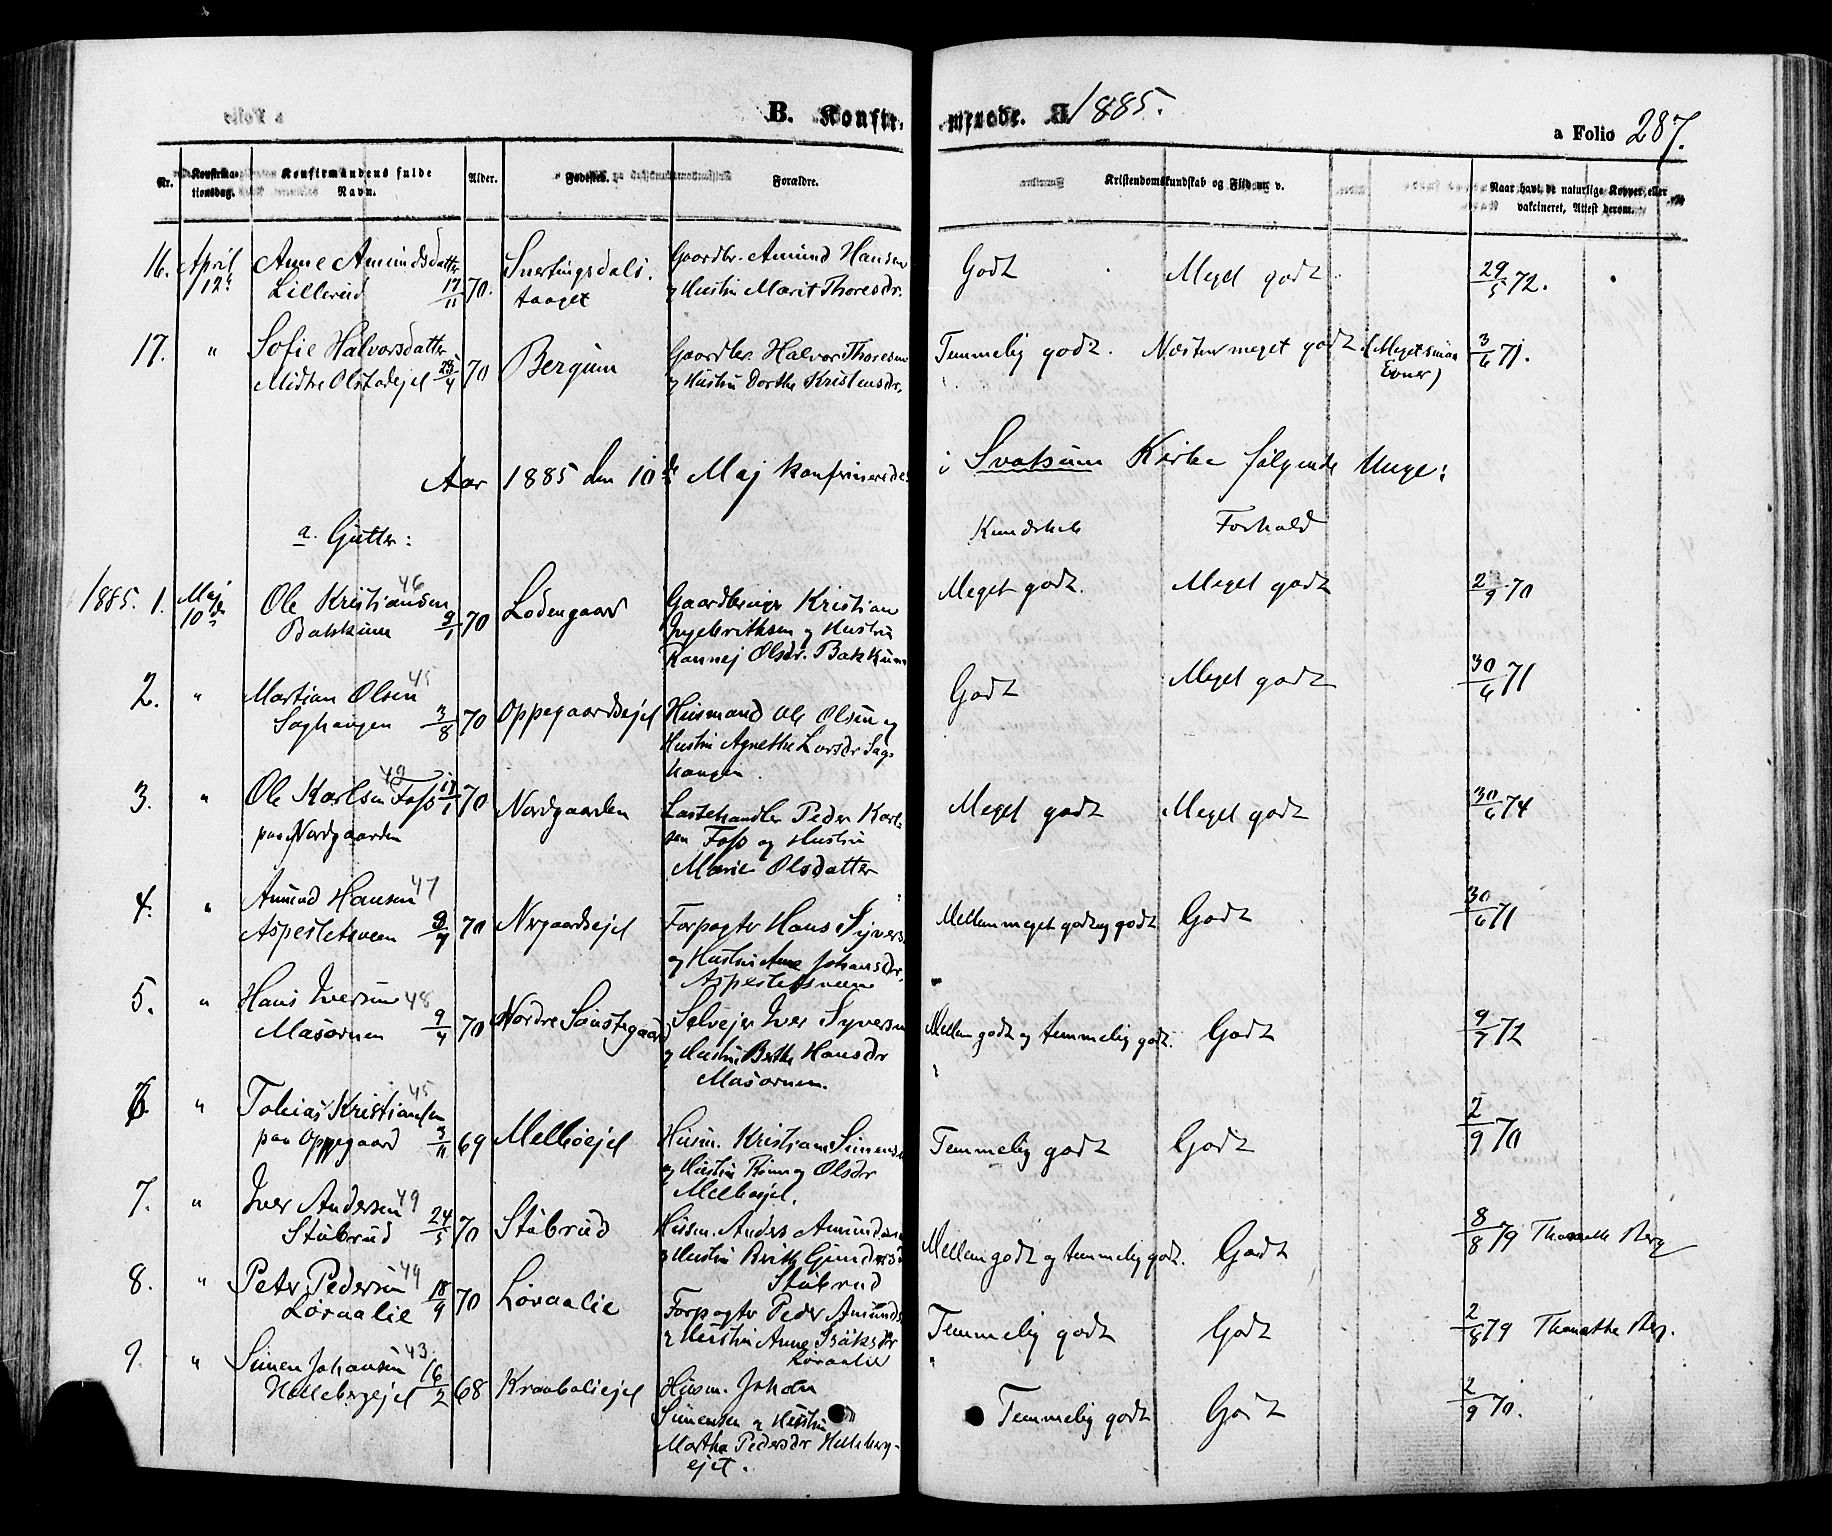 B. Konfir-merede. 1885.
a Folio 287.
Nr. Konfirmationsdag. Konfirmandens fulde Navn. Alder. Fødested. Forældre. Kristendomskundskab og Flid m. v. Naar havt de naturlige Kopper eller vakcineret, Attest derom.
16. April 12te Anne Amundsdatter Lillerud 17/11 70. Snertingsdals. taaget Gaardbr. Amund Hansen og Hustru Marit Thoresdr. Godt Meget godt. 29/5 72.
17. " Sofie Halvorsdatter Midtre Olstadejet 25/4 70 Bergum Gaardbr. Halvor Thoresen og Hustru Dorthe Kristensdr. Temmelig godt. Næsten meget godt. (Meget smaa Evner) 3/6 71.
Aar 1885 den 10de Maj konfirmeredes i Svatsum Kirke følgende Unge:
a. Gutter: Kundskab Forhold
1885. 1. Maj 10de Ole Kristiansen 46 Bakkum 9/1 70 Lodengaard Gaardbruger Kristian Ingebrigtsen og Hustru Rannej Olsdr. Bakkum Meget godt. Meget godt 2/9 70
2. " Martian Olsen 45 Saghaugen 3/8 70 Oppegaardsejet Husmand Ole Olsen og Hustru Agnethe Larsdr Saghaugen. Godt Meget godt 30/6 71
3. " Ole Karlsen Foss 17/1 70 paa Nordgaarden Nordgaarden Lastehandler Peder Karlsen Foss og Hustru Marie Olsdatter Meget godt Meget godt 30/6 74
4. " Amund Hansen 47 Aspesletveen 70 Nørgaardsejet Forpagter Hans Syvers. og Hustru Anne Johansdr. Aspesletsveen Mellem meget godt og godt Godt 30/6 71
5. " Hans Iversen 48 Masørnen 9/4 70 Nordre Sønstegaard Selvejer Iver Syversen og Hustru Berthe Hansdr Masørnen. Mellem godt og temmelig godt. Godt 9/7 72
6. " Tobias Kristiansen 45 paa Oppegaard 3/11 69 Melbøejet Husm. Kristian Simensen og Hustru Olsdr Melbøejet. Temmelig godt Godt 2/9 70
7. " Iver Andersen 49 Stubrud 24/5 70 Stubrud Husm. Anders Amundsen og Hustru Berthe Gundersdr Stubrud Mellem godt og temmelig godt. Godt 8/8 79 Thonette Berg
8. " Peter Pedersen 49 Løraalie 18/9 70 Løraalie Forpagter Peder Amunds. og Hustru Anne Isaksdr Løraalie Temmelig godt Godt 2/8 79 Thonethe Berg.
9. " Simen Johansen 43. Hellebergejet 16/2 68 Kraabølsejet Husm. Johan Simensen og Hustru Martha Pedersdr Hellebergejet. Temmelig godt Godt 2/9 70.